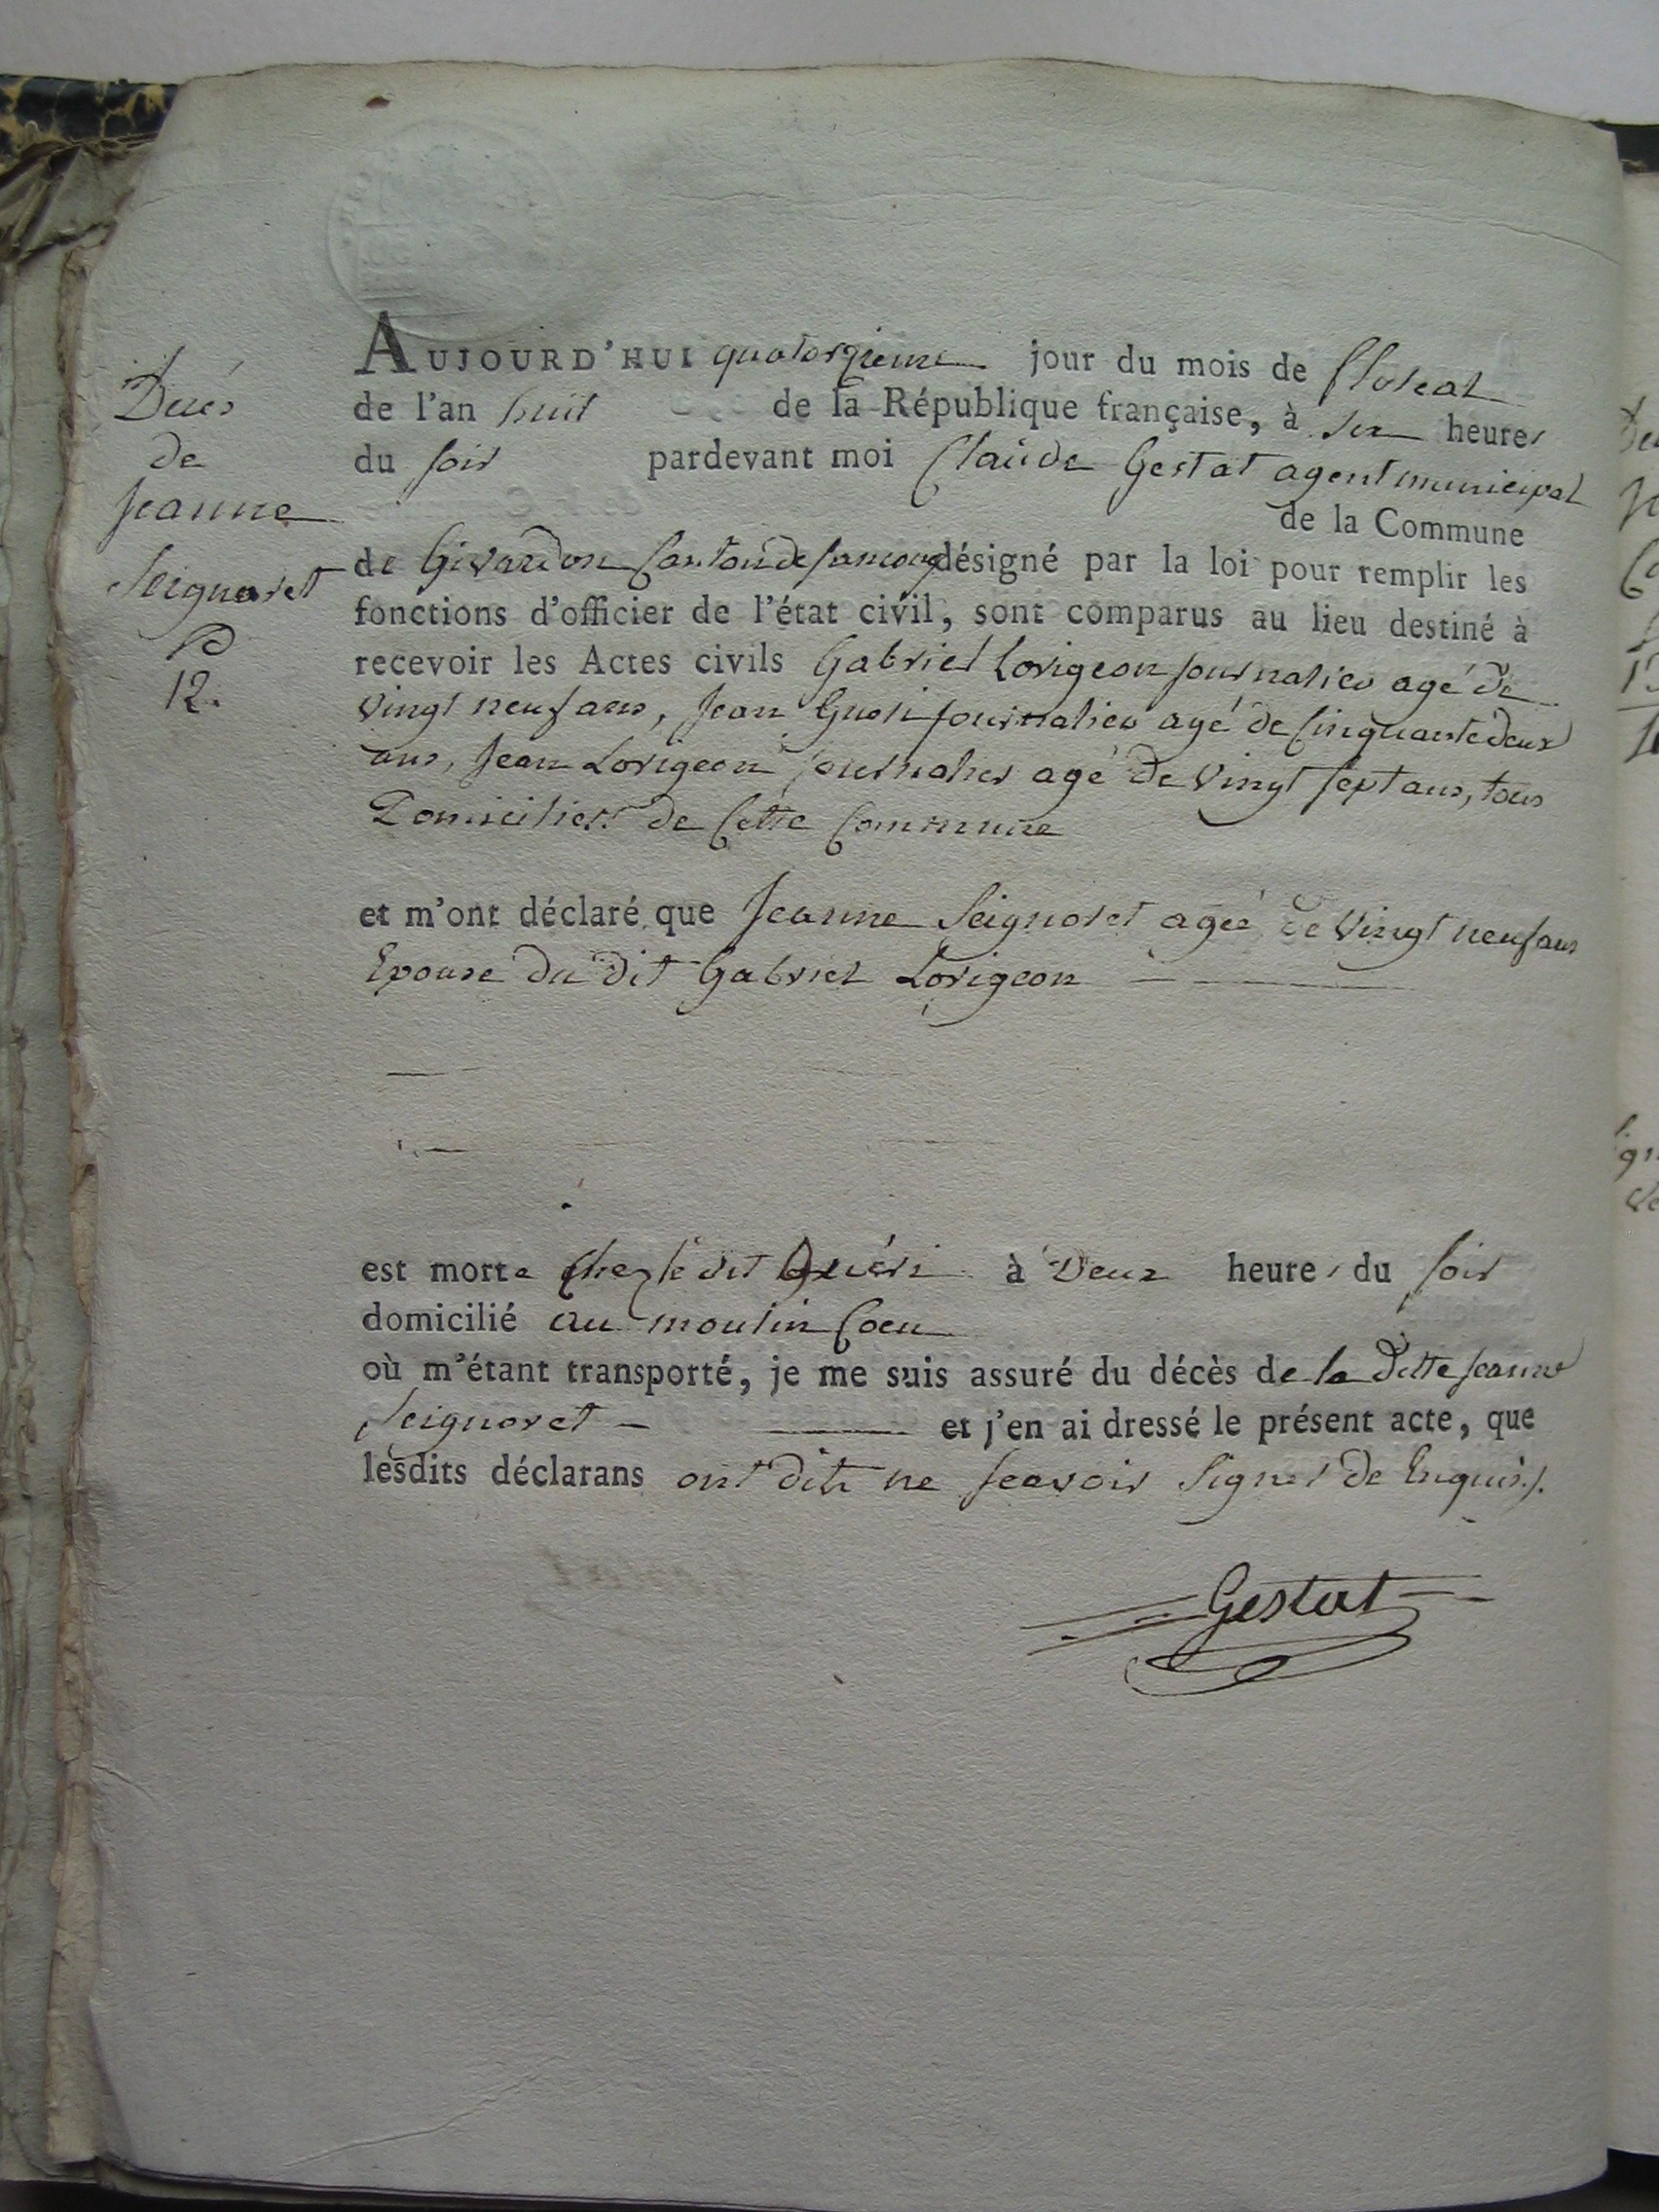 Decès
de
Jeanne
Seignoret
12.
AUJOURD'HUI quatorzieme jour du mois de floreal
de l'an huit de la République française, à six heures
du soir pardevant moi Claude Gestat agent municipal
de la Commune
de Givardon Canton de Sancoins désigné par la loi pour remplir les
fonctions d'officier de l'état civil, sont comparus au lieu destiné à
recevoir les Actes civils Gabriel Lorigeon journalier agé de
vingt neuf ans, Jean journalier agé de Cinquante deux
ans, Jean Lorigeon journalier agé de vingt sept ans, tous
Domiciliers de Cette Commune
et m'ont déclaré que Jeanne Seignoret ageé de vingt neuf ans
Epouse du dit Gabriel Lorigeon
est morte chez le dit à Deux heures du soir
domicilié au moulin Coeu
où m'étant transporté, je me suis assuré du décès de la ditte Jeanne
Seignoret et j'en ai dressé le présent acte, que
lesdits déclarans ont dits ne scavoir signer de Enquis ./.
Gestat